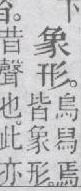 下
象形。烏舄焉
皆象形。
昔聲也。此亦